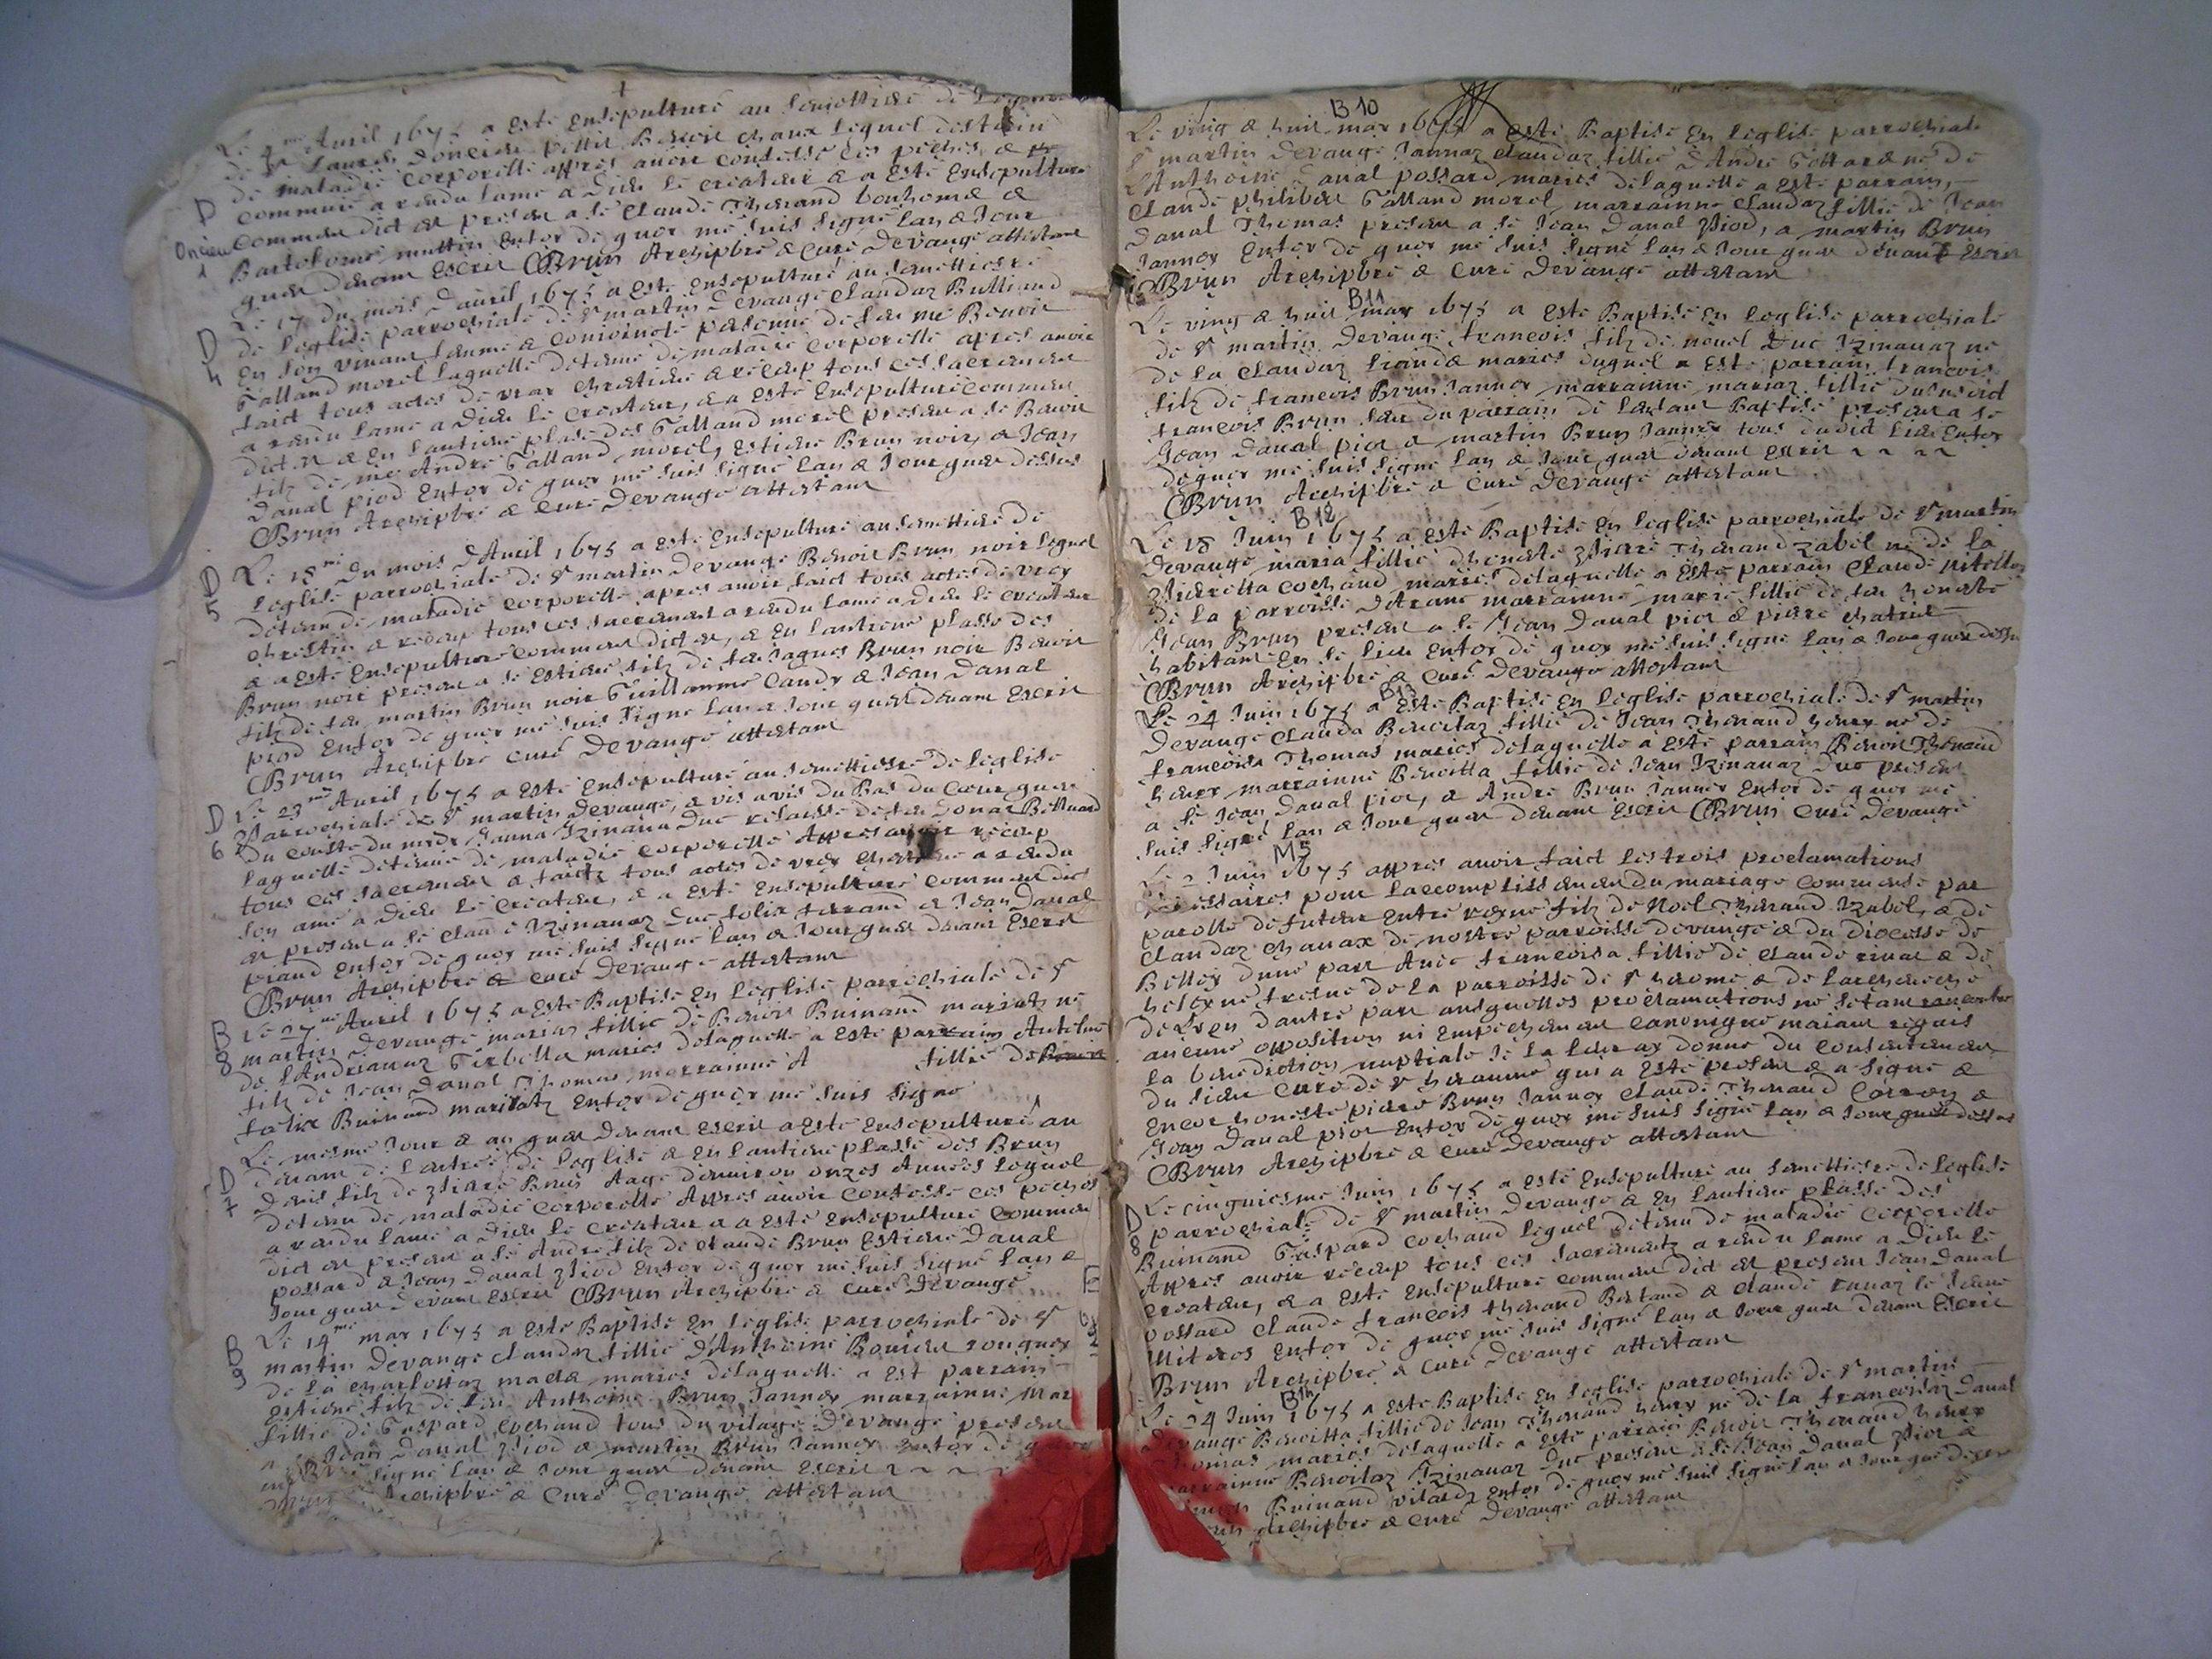 Le 4me Auril 1675 a esté Ensepulturé au semettiere de
de St Laurens doncieu pettit Benoit chanx lequel destenu
de maladie corporelle appres auoir confessé ces peches &
D
communié a rendu lame a dieu le createur & a esté Ensepulture
Oncieu
1
comme dict est present a ce claude Thenand bonhome &
Bartolome muttin Entor de quoy me suis signé lan & Jour
que deuant Escrit CBrun Archipbre & Curé Devange attestant
Le 17 du mois dauril 1675 a esté ensepulturé au semettiere
D
4
de leglise parrochiale de St martin devange claudaz Bulliand
En son viuant femme & conioincte personne de feu me Benoit
Galland morel laquelle detenue de maladie corporelle apres auoir
faict tous actes de vray chrestien & receup tous ces sacremens
a rendu lame a Dieu le Createur, & a esté Ensepulturé comme
dict est & en lantiene plase des Galland morel present a ce Benoit
filz de me André Galland morel, Estiene Brun noir, & Jean
Danal piod Entor de quoy me suis signé lan & Jour que dessus
CBrun Archipbre & Curé Devange attestant
D
5
Le 18me du mois dAuril 1675 a esté Ensepulturé au semettiere de
leglise parrochiale de St martin devange Benoit Brun noir lequel
detenu de maladie corporelle apres auoir faict tous actes de vray
chrestien & receup tous ces sacremens a rendu lame a dieu le createur
& a esté Ensepulture comme dict est, & en lantiene plasse des
Brun noir present a ce Estiene filz de feu Jaques Brun noir Benoit
filz de feu martin Brun noir Guillaumme Candy & Jean Danal
piod Entor de quoy me suis signé lan & Jour que deuant Escrit
CBrun Archipbre Curé Devange attestant
D
6
Le 23me Auril 1675 a esté Ensepulturé au semettiere de leglise
Parrochiale de St martin devange, & vis a vis du Bas du Cœur
du costé du midy Janna Izinana Duc relaissé de feu Benoit
laquelle detenue de maladie corporelle Appres auoir receup
tous ces sacremens & faictz tous actes de vray chrestien a rendu
son ame a Dieu le Createur, & a esté Ensepulturé comme dict
est present a ce claude Izinanaz Duc & Jean Danal
Entor de quoy me suis signé lan & Jour que deuant Escrit
CBrun Archipbre & Curé Devange attestant
B
8
Le 27me Auril 1675 a esté Baptisé En leglise parrochiale de St
martin devange marian fillie de Benoit Buinand mariatz ne
de lAndrianaz Girbella mariés delaquelle a esté parrain Antelme
filz de Jean Danal Thomas, marrainne A fillie de
felix Buinand mariatz Entor de quoy me suis signe
Le mesme Jour & an que deuant escrit a esté Ensepulturé au
D
7
deuant de lantree de leglise & en lantiene plasse des Brun
Denis filz de Piare Brun Aagé denuiron onzes Annees lequel
detenu de maladie corporelle Appres auoir confessé ces peches
a rendu lame a Dieu le createur & a esté Ensepulturé comme
dict est present a ce André filz de claude Brun Estiene Danal
possard & Jean Danal Piod Entor de quoy me suis signé lan &
Jour que devant Escrit CBrun Archipbre & Curé Devange
B
9
Le 14me may 1675 a esté Baptisé En leglise parrochiale de St
martin devange claudaz fillie dAnthoine Bouuent rouguey
de la charlottaz made mariés delaquelle a est parrain
Estiene filz de feu Anthoine Brun Janney marrainne Mar
fillie de Gaspard Cochand tous du vilage devange present
a ce Jean Danal Piod & martin Brun Janney Entor de quoy
me suis signe lan & Jour que deuant Escrit
CBrun Archipbre & Curé Devange attestant
B 10
Le ving & huit may 1675 a esté Baptisé En leglise parrochiale
St martin devange Jannaz claudaz fillie dAndre Gottard ne de
lAnthoine Danal possard mariés delaquelle a esté parrain,
claude philibert Galland morel, marrainne claudaz fillie de Jean
Danal Thomas present a ce Jean Danal Piod, & martin Brun
Jannoy Entor de quoy me suis signé lan & Jour que deuant Escrit
CBrun Archipbre & Curé Devange attestant
B11
Le ving & huit may 1675 a esté Baptisé En leglise parrochiale
de St martin Devange francois filz de nouel Duc Izinanaz ne
de la claudaz mariés duquel a esté parrain francois
filz de francois Brun Jannoy marrainne mariaz fillie dudict
francois Brun sœur du parrain de lenfant Baptisé present a ce
Jean Danal pior & martin Brun Janney tous dudict lieu Entor
de quoy me suis signé lan & Jour que deuant escrit
CBrun Archipbre & Curé Devange attestant
B 12
Le 18 Juin 1675 a esté Baptisé En leglise parrochiale de St martin
devange maria fillie dhoneste Piare Thenand Zabel ne de la
Pieretta cochand mariés delaquelle a esté parrain claude
de la parroisse dArane marrainne marie fillie de feu honeste
Jean Brun present a ce Jean Danal pior & piare chatrut
habitant En ce lieu Entor de quoy me suis signé lan & Jour que dessus
CBrun Archipbre & Curé Devange attestant
B13
Le 24 Juin 1675 a esté Baptisé En leglise parrochiale de St martin
devange Clauda Benoitaz fillie de Jean Thenand henry ne de
francoisa Thomas mariés delaquelle a esté parrain Benoit Thenand
henry marrainne Benoitta fillie de Jean Izinanaz Duc present
a ce Jean Danal pior, & André Brun Janney Entor de quoy me
suis signé lan & Jour que deuant Escrit CBrun Curé Devange
M5
Le 2 Juin 1675 appres auoir faict les trois proclamations
necessaires pour laccomplissement du mariage commense par
parolle de futeur Entre filz de Noel Thenand Izabel, & de
claudaz chanax de nostre parroisse devange & du diocesse de
Belley dune part Auec francoisa fillie de claude & de
de la parroisse de St herome & de larcheueche
de Lyon dautre part ausquelles proclamations ne setant rencontre
aucune oposition ni Empechement canonique maiant requis
la benediction nuptiale Je la leur ay donne du consentement
du sieur Curé de St heraume qui a esté present & a signé &
Encor honeste piare Brun Jannoy claude Thenand Corron &
Jean Danal pior Entor de quoy me suis signé lan & Jour que dessus
CBrun Archipbre & Curé Devange attestant
D
8
Le cinquiesme Juin 1675 a esté Ensepulturé au semettiere de leglise
parrochiale de St martin devange & En lantiene plasse des
Buinand Gaspard cochand lequel detenu de maladie corporelle
Appres auoir receup tous ces sacrementz a rendu lame a Dieu le
createur, & a esté Ensepulturé comme dict est present Jean Danal
possard claude francois thenand Bertand & claude
Entor de quoy me suis signé lan & Jour que deuant Escrit
Brun Archipbre & Curé Devange attestant
B14
Le 24 Juin 1675 a esté Baptisé En leglise parrochiale de St martin
devange Benoitta fillie de Jean Thenand henry ne de la francoisaz Danal
Thomas mariés delaquelle a esté parrain Benoit Thenand henry
marrainne Benoitaz Izinanaz Duc present a ce Jean Danal Pior &
Buinand Entor de quoy me suis signé lan & Jour que dessus
Brun Archipbre & Curé Devange attestant